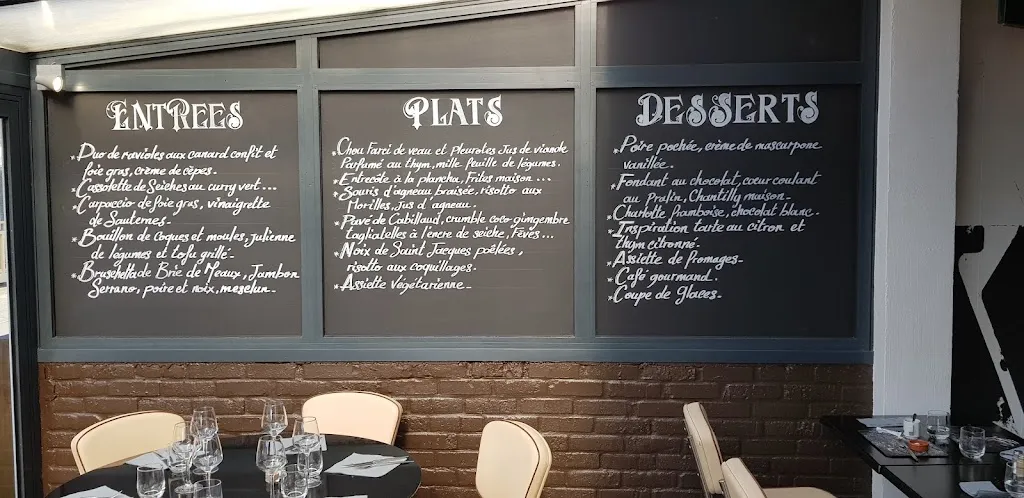 ENTREES
*Duo de ravioles aux canard confit et
foie gras, crème de cèpes.
*Cassolette de Seiches au curry vert...
*Carpaccio de foie gras, vinaigrette
de Sauternes.
*Bouillon de coques et moules, julienne
de légumes et tofu grillé.
*Bruschetta de Brie de Meaux, Jambon
Serrano, poire et noix, mesclun.
PLATS
*Chou Farci de veau et Pleurotes Jus de viande
Parfumé au thym, mille feuille de légumes.
*Entrecôte à la plancha, Frites maison...
*Souris d'agneau braisée, risotto aux
Morilles, Jus d'agneau.
*Pavé de Cabillaud, crumble coco gingembre
tagliatelles à l'encre de seiche, Fèves...
*Noix de Saint Jacques poêlées,
risotto aux coquillages.
*Assiette Végétarienne.
DESSERTS
*Poire pochée, crème de mascarpone
vanillée.
*Fondant au chocolat, cœur coulant
au Pralin, Chantilly maison.
*Charlotte framboise, chocolat blanc.
*Inspiration tarte au citron et
thym citronné.
*Assiette de fromages.
*Café gourmand.
*Coupe de Glaces.